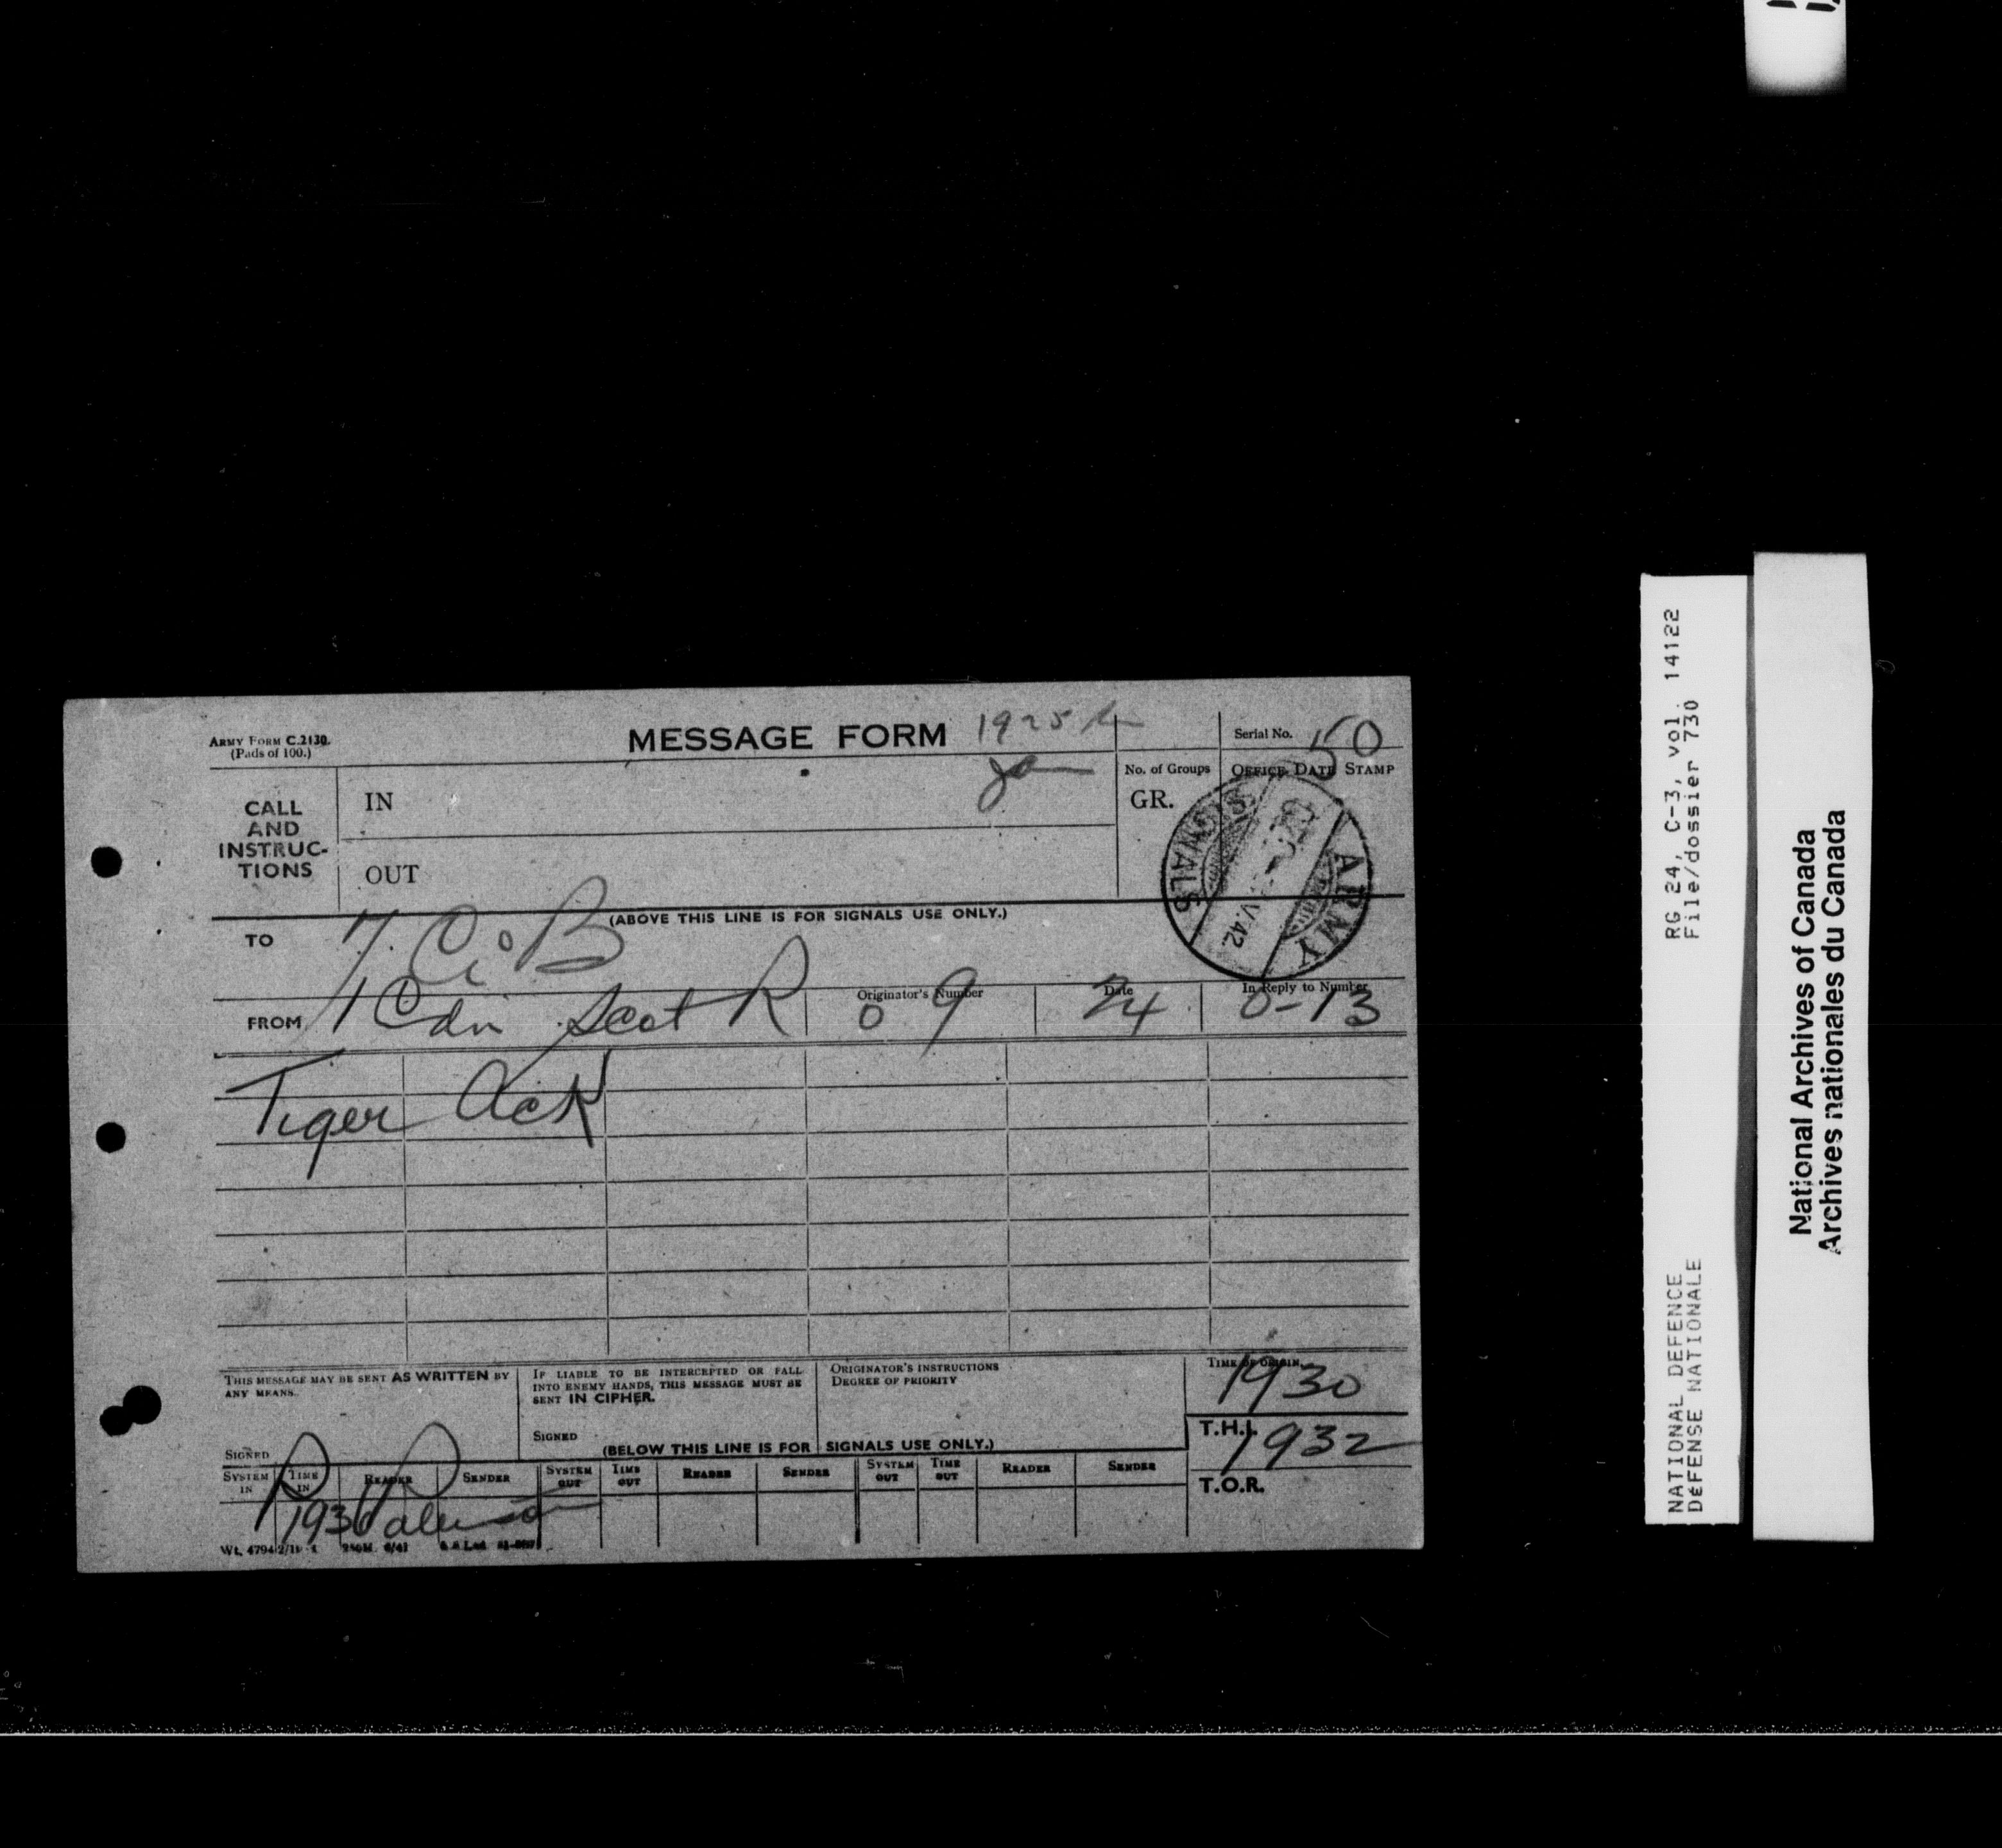 ARMY FORM C.2130.
(Pads of 100.)
MESSAGE FORM
1925
Serial No. 50
CALL AND INSTRUC-TIONS
IN
No. of Groups
GR.
OFFICE DATE STAMP
OUT
ARMY SIGNALS
V.42.
(ABOVE THIS LINE IS FOR SIGNALS USE ONLY.)
TO 7 CiB
FROM 1 Cdn Scot R
Originator's Number O 9
Date 24
In Reply to Number O-13
Tiger Ack
THIS MESSAGE MAY BE SENT AS WRITTEN BY ANY MEANS.
SIGNED
IF LIABLE TO BE INTERCEPTED OR FALL INTO ENEMY HANDS, THIS MESSAGE MUST BE SENT IN CIPHER.
SIGNED
ORIGINATOR'S INSTRUCTIONS
DEGREE OF PRIORITY
TIME OF ORIGIN.
1930
T.H.I. 1932
T.O.R.
(BELOW THIS LINE IS FOR SIGNALS USE ONLY.)
SYSTEM IN
TIME IN
READER
SENDER
SYSTEM OUT
TIME OUT
READER
SENDER
SYSTEM OUT
TIME OUT
READER
SENDER
RG 24, C-3, vol. 14122
File/dossier 730
NATIONAL DEFENCE
DÉFENSE NATIONALE
National Archives of Canada
Archives nationales du Canada